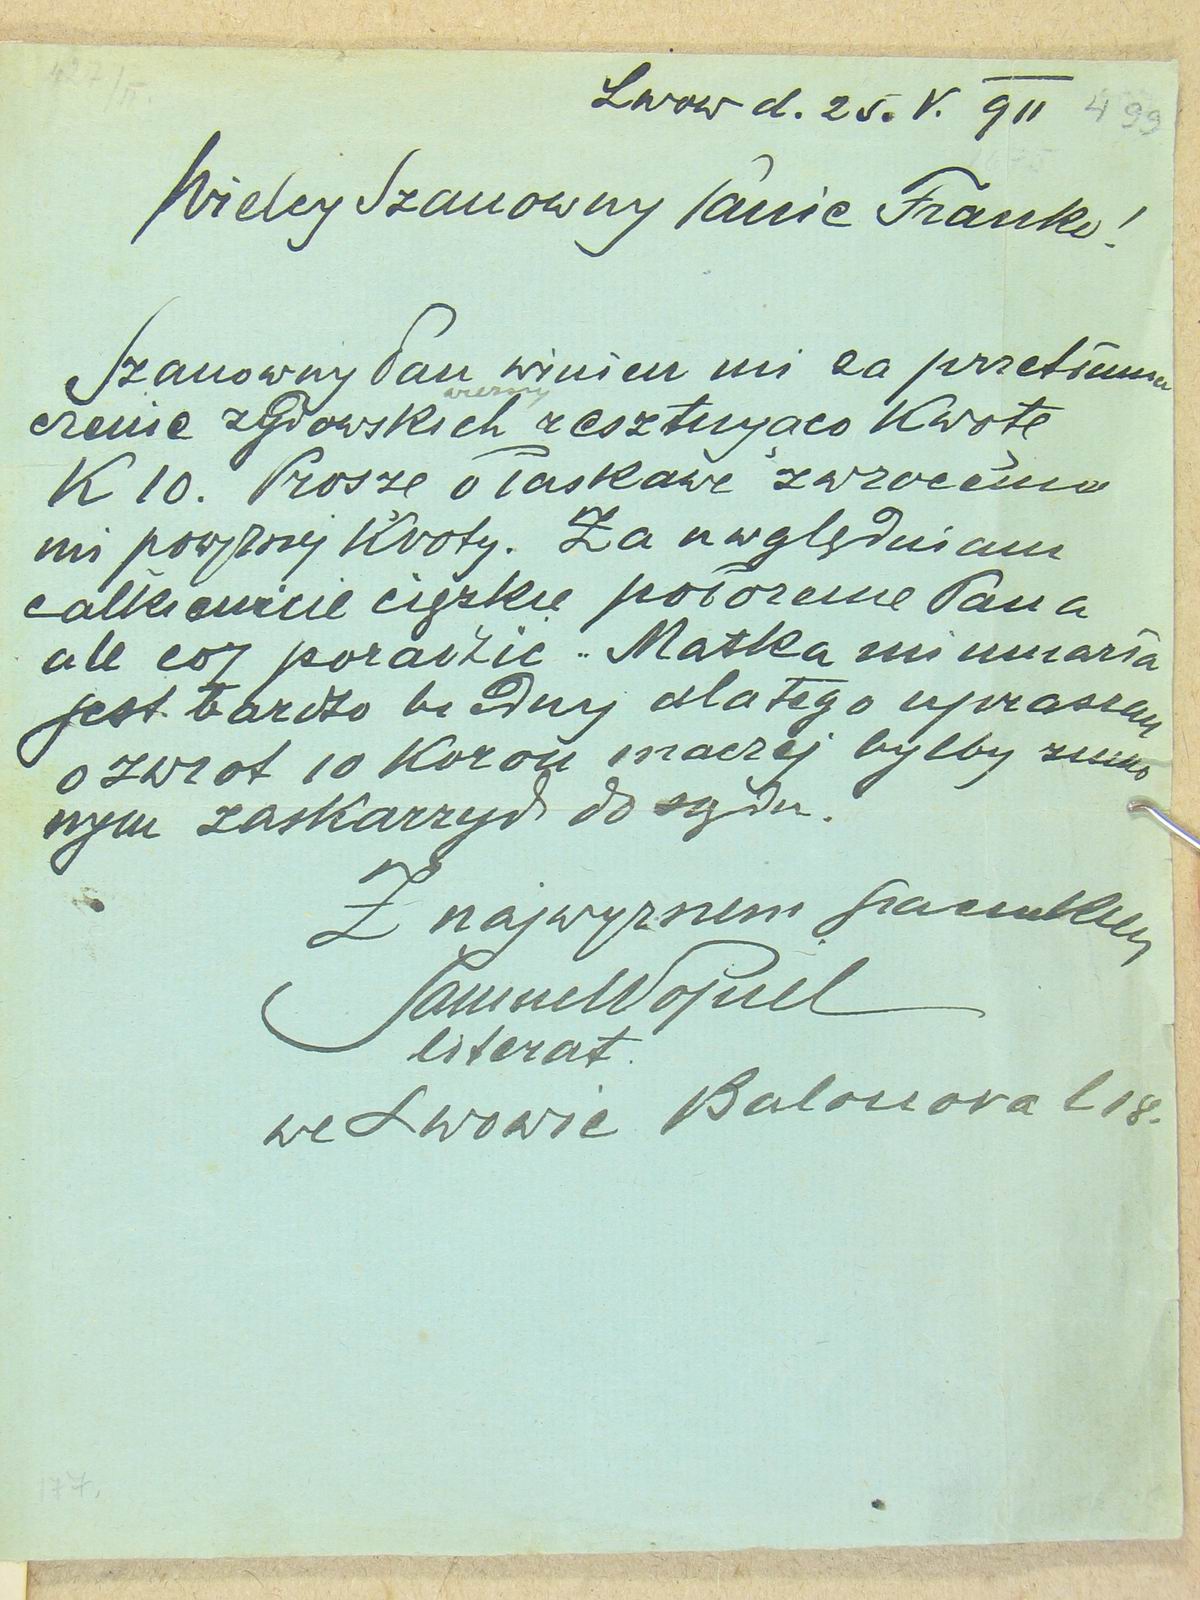 427/II.
Lwow d. 25. V. 911 499
Wielcy Szanowny Panie Franko!
Szanowny Pan winien mi za przetłuma
czenie zydowskich resztująco Kwote
wierszy
K 10. Prosze o łaskawe zwrocenie
mi powyzszej Kwoty. Za uwględniam
całkiem cięzkie połozenie Pana
ale coz poradzić. Matka mi umarła
jest bardzo biedny dlatego upraszam
o zwrot 10 Koron inaczej byłby zmuszo
nym zaskarzyć do sądu.
Z najwyzszem szacunkiem
Samuel
literat.
we Lwowie Balonowa l 18.
177.